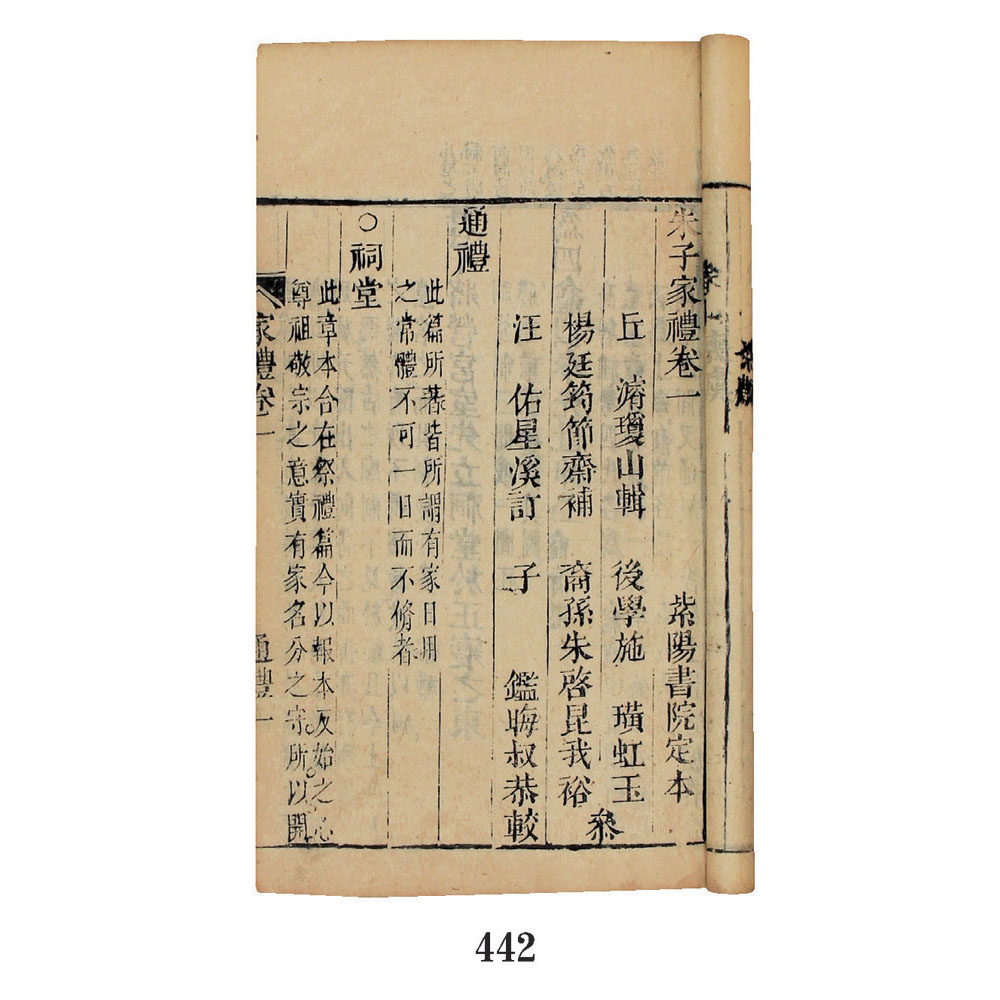 朱子家禮卷一 紫陽書院定本
丘 濬瓊山輯 後學施 璜虹玉
楊廷筠節齋補 裔孫朱啓昆我裕 叅
汪 佑星溪訂 子 鑑晦叔恭較
通禮
此篇所著皆所謂有家日用
之常體不可一日而不脩者
○祠堂
此章本合在祭禮篇今以報本反始之心
尊祖敬宗之意實有家名分之守所以開
家禮卷一 通禮一
442